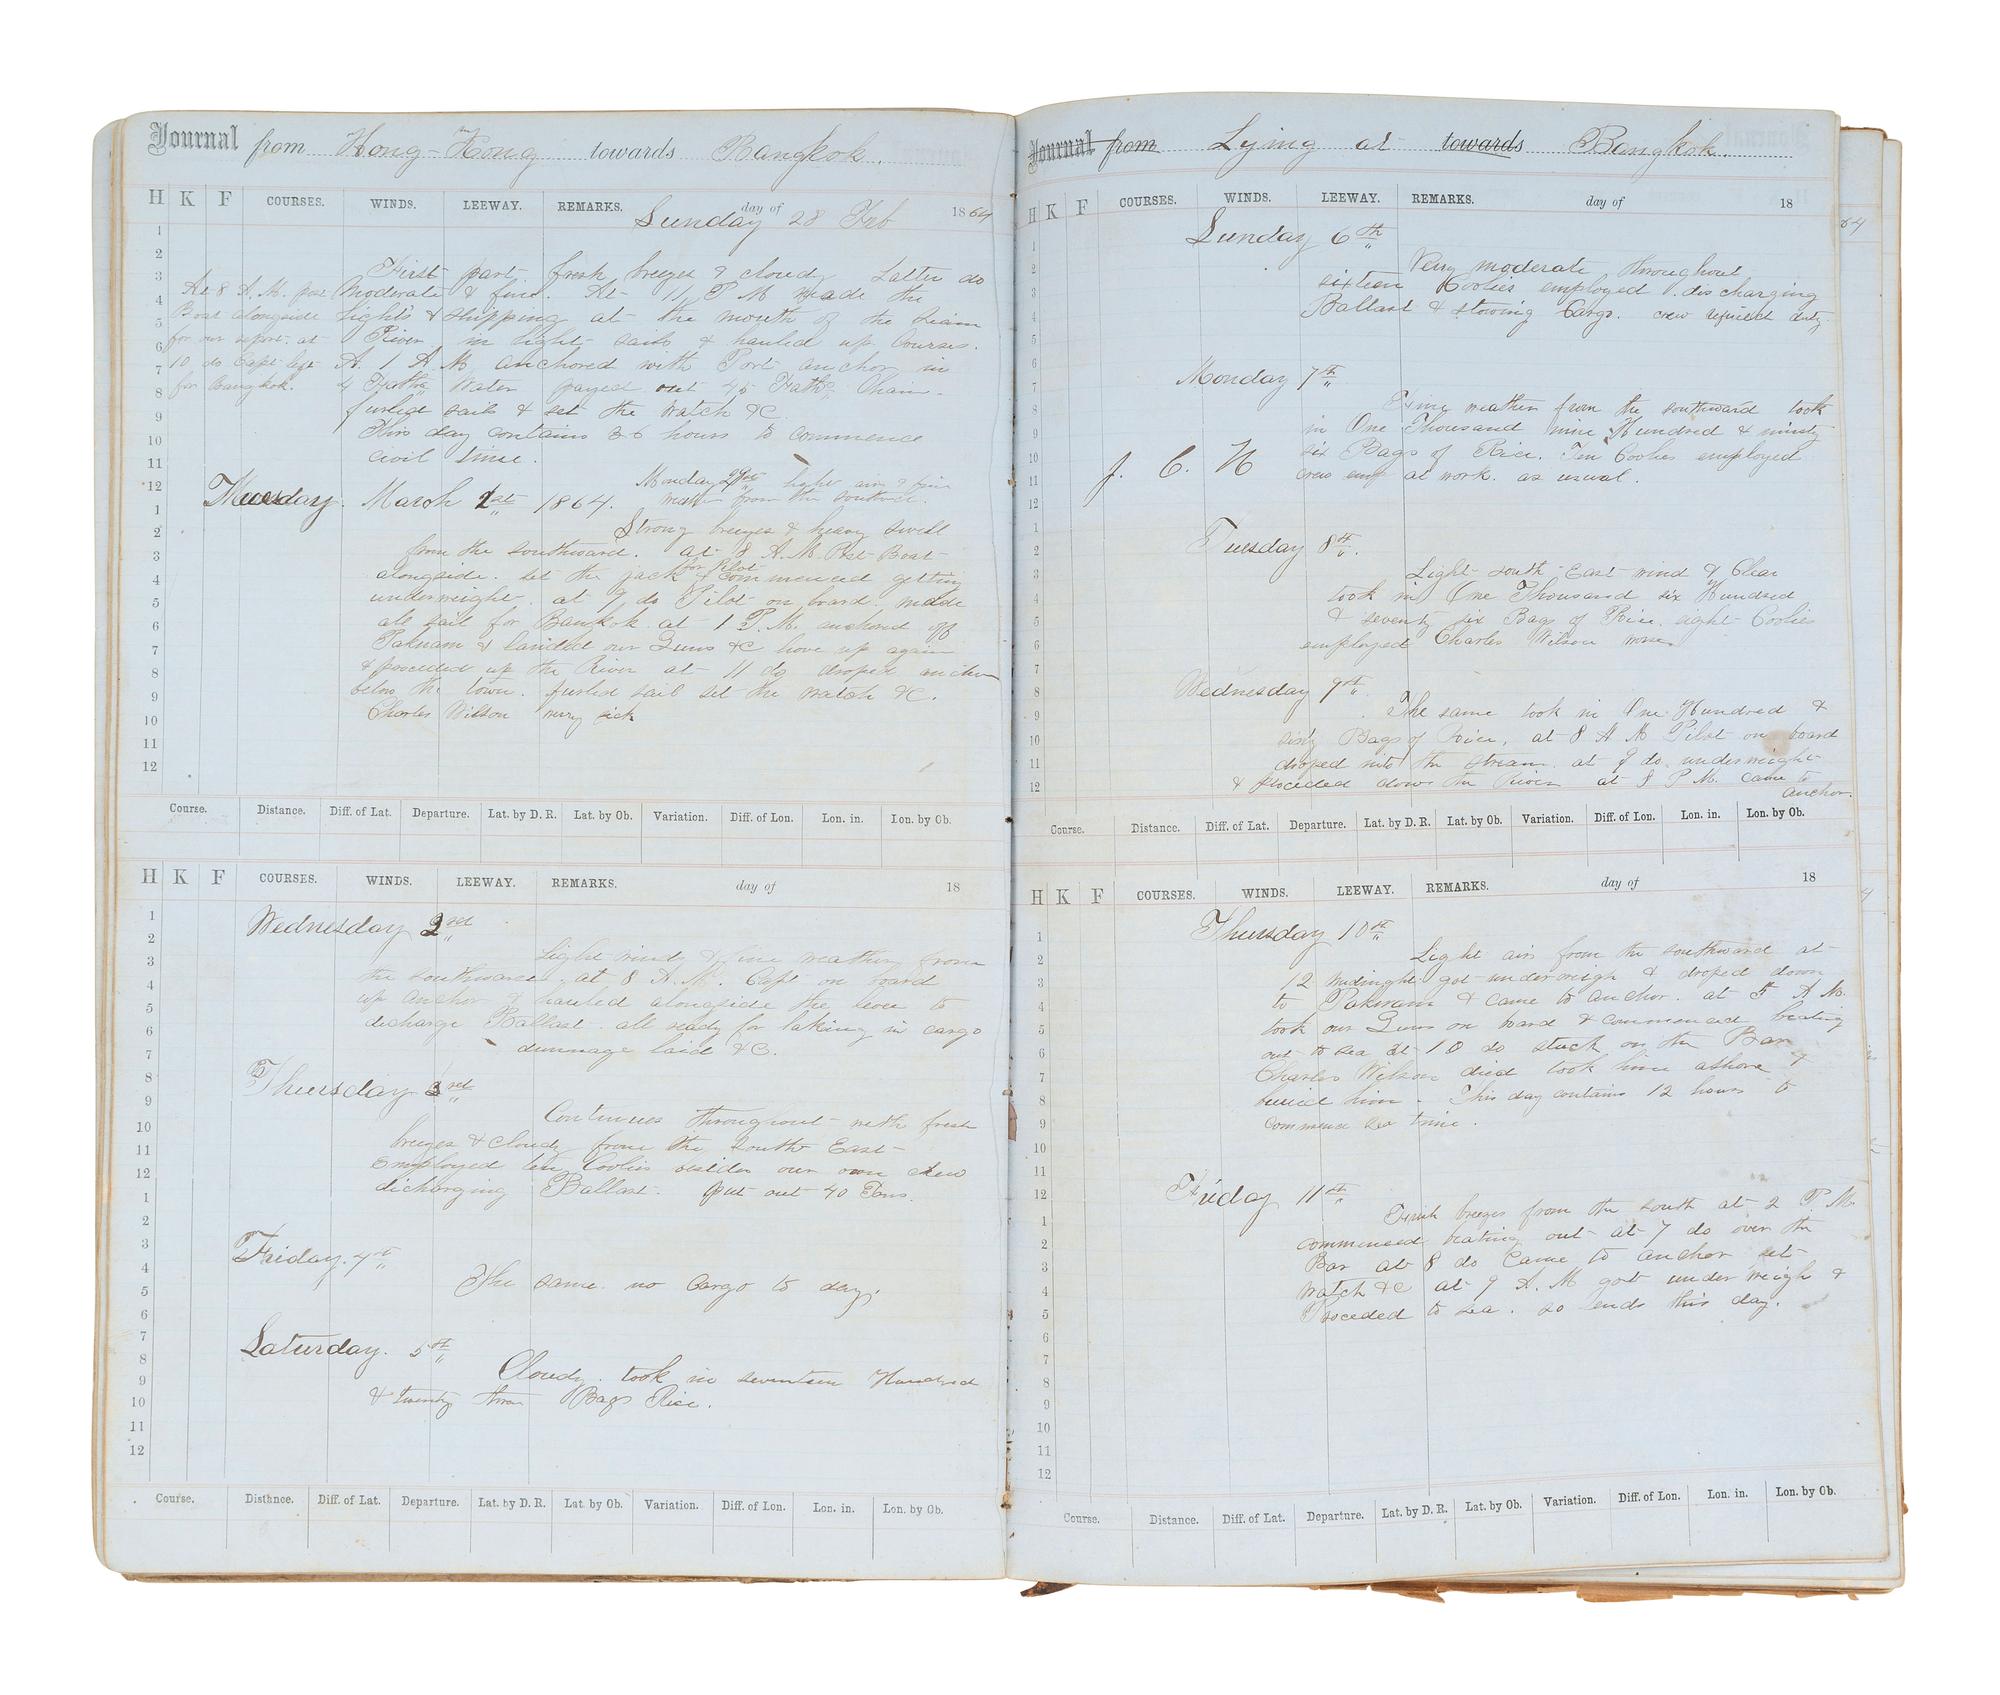 Journal from Hong-Kong towards Bangkok.
H K F COURSES. WINDS. LEEWAY. REMARKS. Sunday day of 28 Feb 1864
1
2
3
4
5
6
7
8
9
10
11
12
First part fresh breezes & cloudy Latter do
Moderate & fine. At 11 P M made the
Lights & shipping at the mouth of the Siam
River in light sails & hauled up Courses.
A. 1 A M anchored with Port anchor in
4 Fathm Water payed out 45 Fathm Chain.
furled sails & set the watch &C.
This day contains 36 hours to commence
civil time.
At 8 A. M. post
Boat alongside
for our report. at
10 do Capt left
for Bangkok.
Monday 29th light airs & fine
weather from the southwd.
Tuesday. March 1st 1864.
1
2
3
4
5
6
7
8
9
10
11
12
Strong breezes & heavy swell
from the southward. at 8 A.M. Post-Boat
alongside. set the jack for Pilot & commenced getting
underweight. at 9 do Pilot on board. made
all sail for Bangkok at 1 P.M. anchored off
Paknam & landed our Guns &C hove up again
& proceded up the River at 11 do droped anchor
below the town. furled sail set the watch &C.
Charles Wilson very sick
Course. Distance. Diff. of Lat. Departure. Lat. by D. R. Lat. by Ob. Variation. Diff. of Lon. Lon. in. Lon. by Ob.
H K F COURSES. WINDS. LEEWAY. REMARKS. day of 18
1
2
3
4
5
6
7
8
9
10
11
12
1
2
3
4
5
6
7
8
9
10
11
12
Wednesday 2nd
Light wind & fine weather from
the southward. at 8 A.M. Capt on board
up anchor & hauled alongside the to
dicharge Ballast. all ready for taking in cargo
dunnage laid &C.
Thursday 3rd
Continues throughout with fresh
breezes & cloudy from the South East
Employed ten Coolies besides our own crew
dicharging Ballast. put out 40 Tons.
Friday. 4th
The same. no Cargo to day.
Saturday. 5th
Cloudy. took in seventeen Hundred
& twenty three Bags Rice.
Course. Distance. Diff. of Lat. Departure. Lat. by D. R. Lat. by Ob. Variation. Diff. of Lon. Lon. in. Lon. by Ob.
Journal from Lying at towards Bangkok.
H K F COURSES. WINDS. LEEWAY. REMARKS. day of 18
1
2
3
4
5
6
7
8
9
10
11
12
1
2
3
4
5
6
7
8
9
10
11
12
Sunday 6th
Very moderate throughout
sixteen Coolies employed discharging
Ballast & stowing Cargo. crew duty.
Monday 7th
Fine weather from the southward took
in One Thousand nine Hundred & ninety
six Bags of Rice. Ten Coolies employed
crew emp at work. as usual.
J. C. N
Tuesday 8th.
Light south-East wind & Clear
took in One Thousand six Hundred
& seventy six Bags of Rice. eight Coolies
employed Charles Wilson worse
Wednesday 9th.
The same took in One Hundred &
sixty Bags of Rice, at 8 A M Pilot on board
droped into the stream. at 9 do. underweight
& proceded down the River at 8 P.M. came to
anchor.
Course. Distance. Diff. of Lat. Departure. Lat. by D. R. Lat. by Ob. Variation. Diff. of Lon. Lon. in. Lon. by Ob.
H K F COURSES. WINDS. LEEWAY. REMARKS. day of 18
1
2
3
4
5
6
7
8
9
10
11
12
1
2
3
4
5
6
7
8
9
10
11
12
Thursday 10th
Light airs from the southward at
12 midnight got underweigh & droped down
to Paknam & came to anchor. at 5 A M.
took our Guns on board & commenced beating
out to sea at 10 do stuck on the Bar
Charles Wilson died took him ashore &
buried him. This day contains 12 hours to
commence sea time.
Friday 11th
Fresh breezes from the south at 2 P.M.
commenced beating out at 7 do over the
Bar at 8 do Came to anchor set
watch &C at 9 A. M got under weigh &
Proceded to sea. so ends this day.
Course. Distance. Diff. of Lat. Departure. Lat. by D. R. Lat. by Ob. Variation. Diff. of Lon. Lon. in. Lon. by Ob.
64